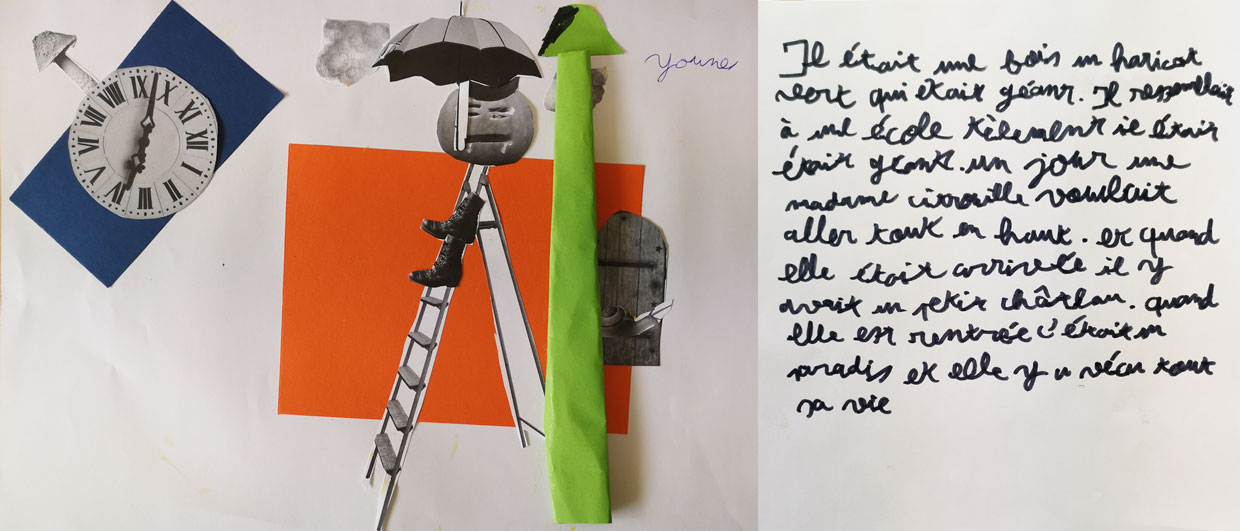 XII I II III IIII V VI VII VIII IX X XI
Younes
Il était une fois un haricot
vert qui était géant. Il ressemblait
à une école tèlement il était
était géant. un jour une
madame citrouille voulait
aller tout en haut. et quand
elle était arrivée il y
avait un petit château. quand
elle est rentrée c'était un
paradis et elle y a vécu tout
sa vie